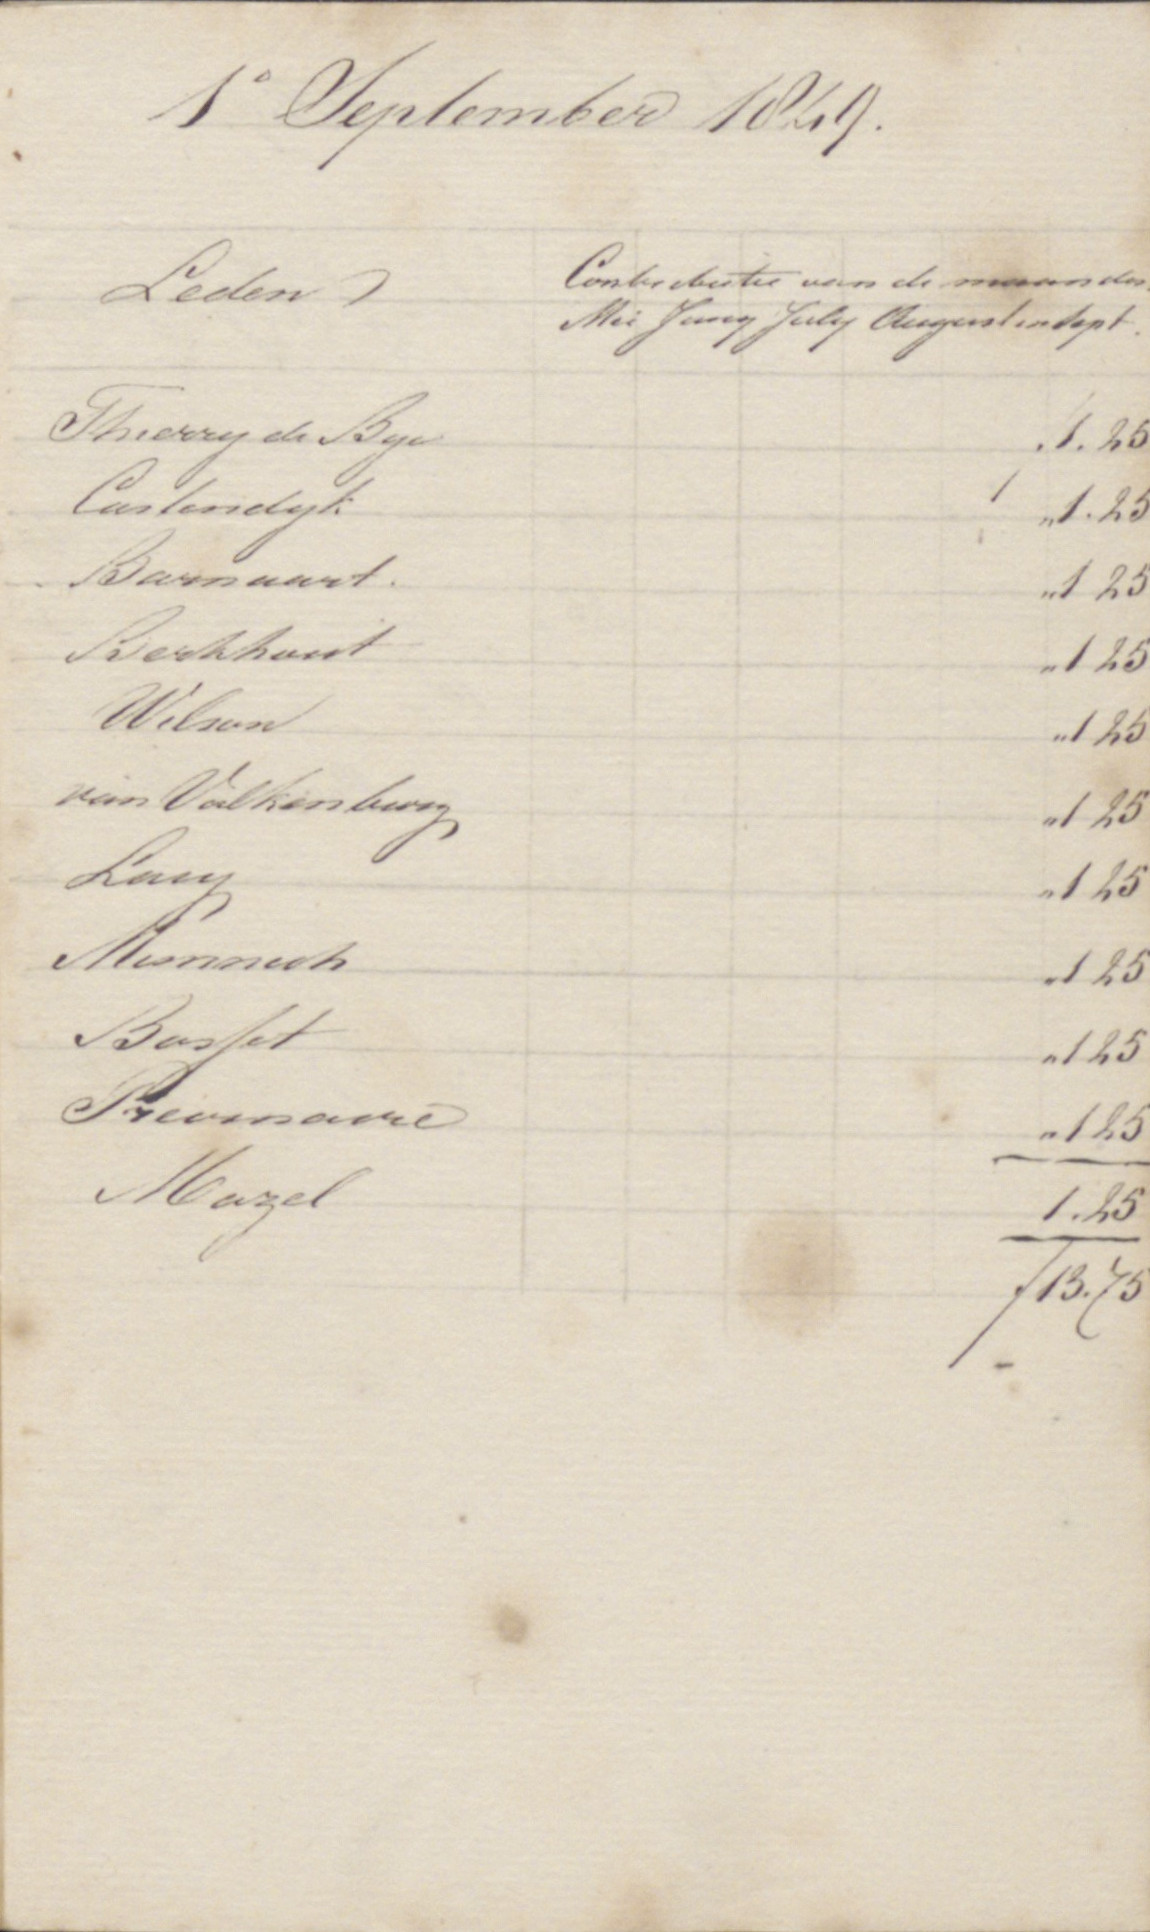 1° September 1849.
Leden
Contributie van de maanden
Mei Juny July Augustus en Sept.
Thierry de Bye „1.25
Carlendyk „1.25
Barnaart. „1 25
Berkhout „1 25
Wilson „1 25
van Valkenburg „1 25
Lucy „1 25
Mumnich „1 25
Basset „1 25
Previnaire „1 25
Mazel 1.25
ƒ13.75